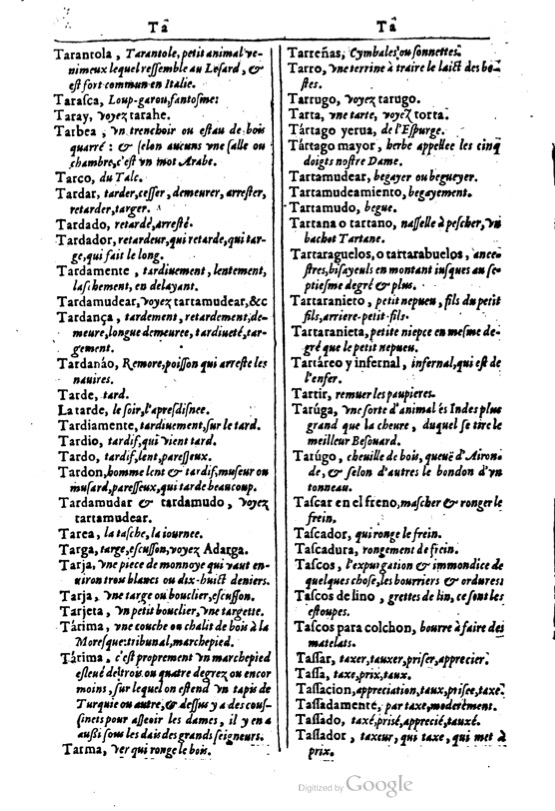 Tâ
Tarantola, Tarantole, petit animal ve-
nimeux lequel ressemble au Lesard, &
est fort commun en Italie.
Tarasca, Loup-garou, fantosme:
Taray, voyez tarahe.
Tarbea, vn trenchoir ou estau de bois
quarré : & selon aucuns vne salle ou
chambre, c'est vn mot Arabe.
Tarco, du Talc.
Tardar, tarder, cesser, demeurer, arrester,
retarder, targer.
Tardado, retardé, arresté.
Tardador, retardeur, qui retarde, qui tar-
ge, qui fait le long.
Tardamente, tardiuement, lentement,
laschement, en delayant.
Tardamudear, voyez tartamudear, &c
Tardança, tardement, retardement, de-
meure, longue demeuree, tardiueté, tar-
gement.
Tardanáo, Remore, poisson qui arreste les
nauires.
Tarde, tard.
La tarde, le soir, l'apresdisnee.
Tardiamente, tardiuement, sur le tard.
Tardio, tardif, qui vient tard.
Tardo, tardif, lent, paresseux.
Tardon, homme lent & tardif, museur ou
musard, paresseux, qui tarde beaucoup.
Tardamudar & tardamudo, voyez
tartamudear.
Tarea, la tasche, la iournee.
Targa, targe, escusson, voyez Adarga.
Tarja, vne piece de monnoye qui vaut en-
uiron trois blancs ou dix-huict deniers.
Tarja, vne targe ou bouclier, escusson.
Tarjeta, vn petit bouclier, vne targette.
Tárima, vne couche ou chalit de bois à la
Moresque: tribunal, marchepied.
Tárima, c'est proprement vn marchepied
esleué de trois ou quatre degrez ou encor
moins, sur lequel on estend vn tapis de
Turquie ou autre, & dessus y a des cous-
sinets pour asseoir les dames, il y en a
aussi sous les dais des grands seigneurs.
Tarma, ver qui ronge le bois.
Tâ
Tarreñas, Cymbales ou sonnettes.
Tarro, vne terrine à traire le laict des be-
stes.
Tarrugo, voyez tarugo.
Tarta, vne tarte, voyez torta.
Tártago yerua, de l'Espurge.
Tártago mayor, herbe appellee les cinq
doigts nostre Dame.
Tartamudear, begayer ou begueyer.
Tartamudeamiento, begayement.
Tartamudo, begue.
Tartana o tartano, nasselle à pescher, vn
bachot Tartane.
Tartaraguelos, o tartarabuelos, ance-
stres, bisayeuls en montant iusques au se-
ptiesme degré & plus.
Tartaranieto, petit nepueu, fils du petit
fils, arriere-petit-fils.
Tartaranieta, petite niepce en mesme de-
gré que le petit nepueu.
Tartáreo y infernal, infernal, qui est de
l'enfer.
Tartir, remuer les paupieres.
Tarúga, vne sorte d'animal és Indes plus
grand que la cheure, duquel se tire le
meilleur Besouard.
Tarúgo, cheuille de bois, queuë d'Airon-
de, & selon d'autres le bondon d'vn
tonneau.
Tascar en el freno, mascher & ronger le
frein.
Tascador, qui ronge le frein.
Tascadura, rongement de frein.
Tascos, l'expurgation & immondice de
quelques chose, les bourriers & ordures:
Tascos de lino, grettes de lin, ce sont les
estoupes.
Tascos para colchon, bourre à faire des
matelats.
Tassar, taxer, tauxer, priser, apprecier.
Tassa, taxe, prix, taux.
Tassacion, appreciation, taux, prisee, taxe.
Tassadamente, par taxe, moderément.
Tassado, taxé, prisé, apprecié, tauxé.
Tassador, taxeur, qui taxe, qui met à
prix.
Digitized by Google